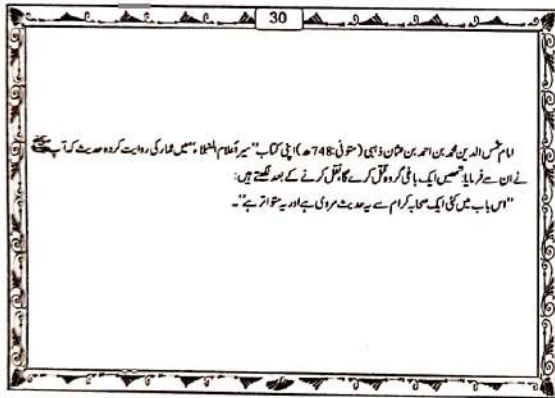 30
امام شمس الدین محمد بن احمد بن عثمان ذہبی (متوفیٰ:748ھ) اپنی کتاب "سیر أعلام النبلاء" میں عمار کی روایت کردہ حدیث کہ آپ ﷺ
نے ان سے فرمایا: تمھیں ایک باغی گروہ قتل کرے گا، نقل کرنے کے بعد لکھتے ہیں:
"اس باب میں کئی ایک صحابہ کرام سے یہ حدیث مروی ہے اور یہ متواتر ہے"۔